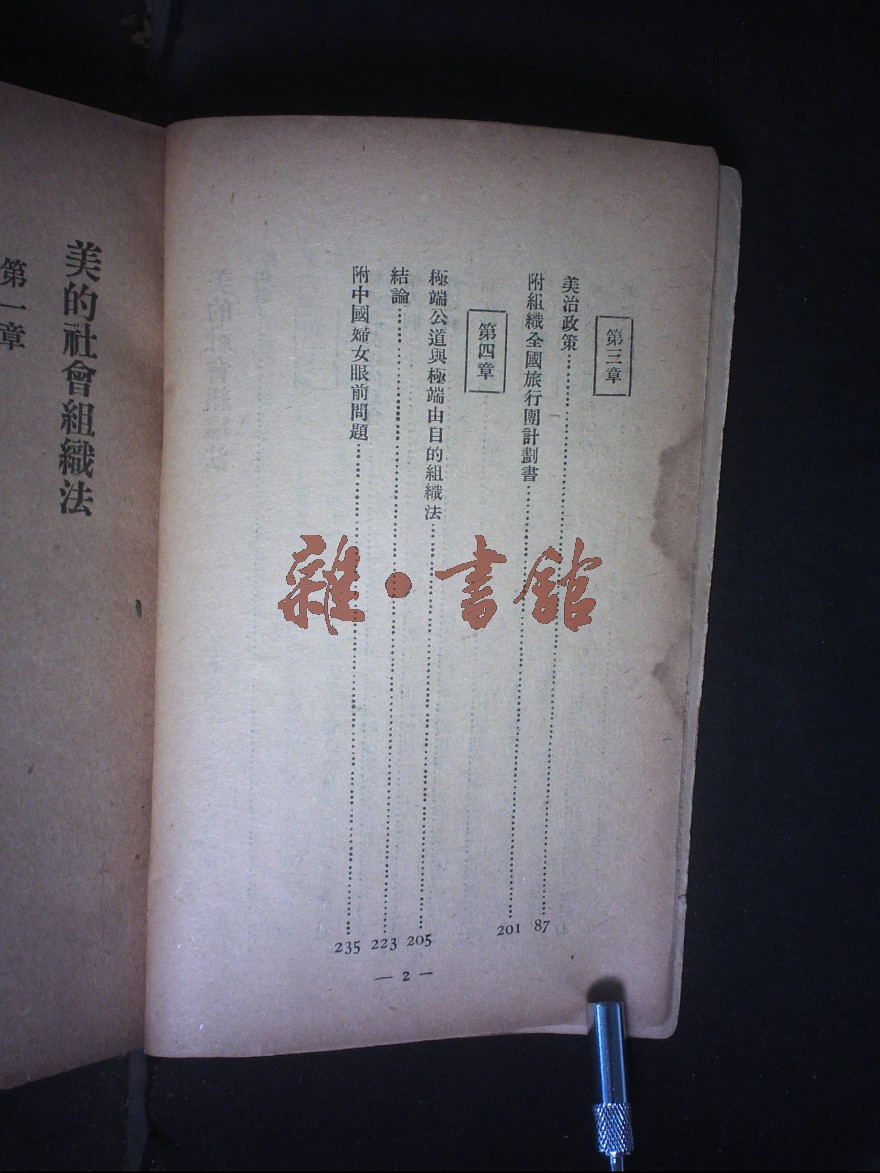 第三章
美治政策 87
附組織全國旅行團計劃書 201
第四章
極端公道與極端由目的組織法 205
結論 223
附中國婦女眼前問題 235
— 2 —
美的社會組織法
第一章
雜·書館